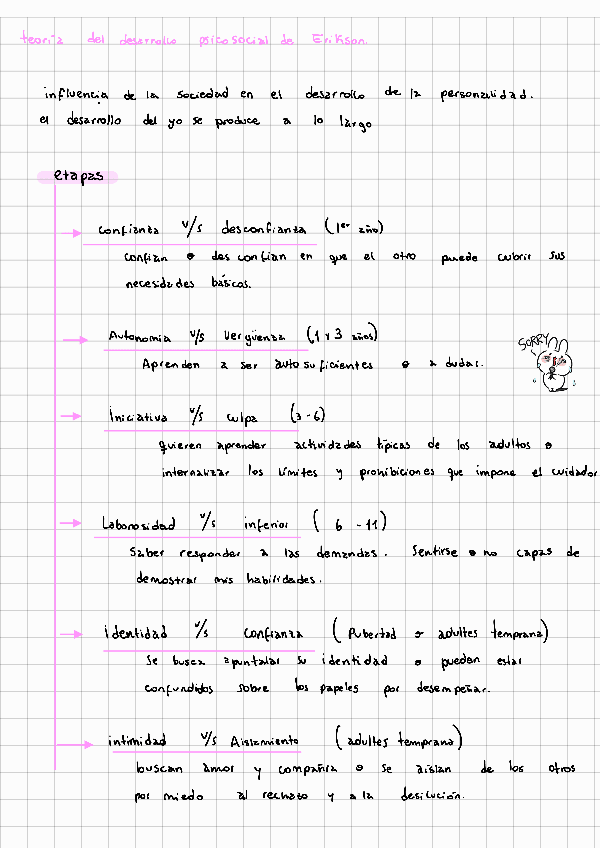 teoria del desarrollo psicosocial de Erikson.
influencia de la sociedad en el desarrollo de la personalidad.
el desarrollo del yo se produce a lo largo
etapas
confianza v/s desconfianza (1er año)
confian o desconfian en que el otro puede cubrir sus
necesidades básicas.
Autonomia v/s vergüenza (1 y 3 años)
Aprenden a ser autosuficientes o a dudar.
SORRY
Iniciativa v/s culpa (3-6)
quieren aprender actividades típicas de los adultos o
internalizar los límites y prohibiciones que impone el cuidador
Laboriosidad v/s inferior (6-11)
Saber responder a las demandas. Sentirse o no capas de
demostrar mis habilidades.
identidad v/s confianza (Pubertad - adultes temprana)
Se busca apuntalar su identidad o pueden estar
confundidos sobre los papeles por desempeñar.
intimidad v/s Aislamiento (adultes temprana)
buscan amor y compañia o se aislan de los otros
por miedo al rechazo y a la desilución.